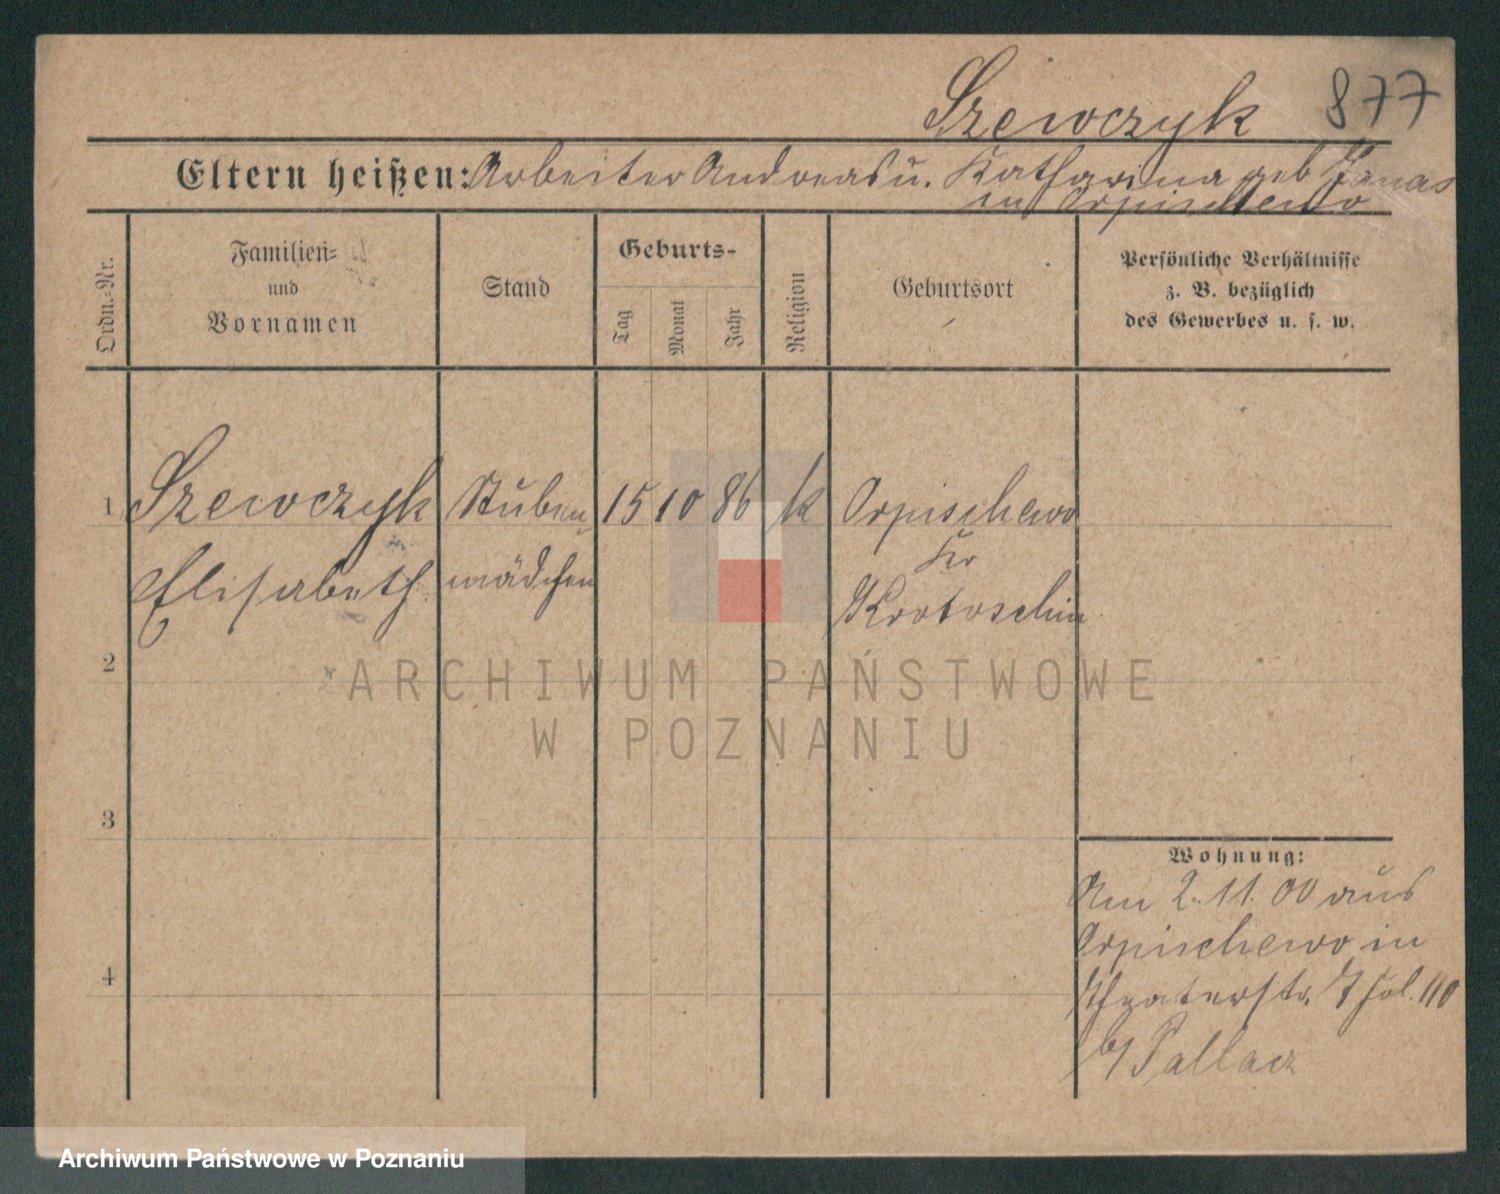 Szewczyk 877
Eltern heißen: Arbeiter Andreas u. Katharina geb Janas
in Orpischewo
Ordn.-Nr.
Familien-
und
Vornamen
Stand
Geburts-
Tag
Monat
Jahr
Religion
Geburtsort
Persönliche Verhältnisse
z. B. bezüglich
des Gewerbes u. s. w.
1 Szewczyk Stuben- 15 10 86 k Orpischewo
Kr
Elisabeth mädchen Krotoschin
2
ARCHIWUM PAŃSTWOWE
W POZNANIU
3
Wohnung:
Am 2.11.00 aus
Orpischewo in
4
Theaterstr. 7 fol. 110
b/ Pallacz
Archiwum Państwowe w Poznaniu